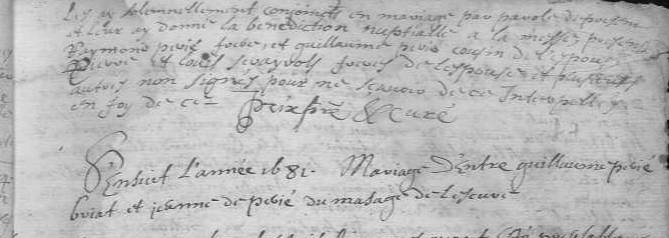 Les ay solemnellement conjoinctz en mariage par parole de present
et leur ay donné la benediction nuptialle a la messe, presens
Raymond perié frere, et guillaume perié cousin de l'epoux
Pierre et Louis frères de l'espouse et plusieurs
autres non signés pour ne scavoir de ce Interpelles
en foy de ce prtre & Curé
S'Ensuit L'année 1681. Mariage D'Entre guillaume perié
briat et jeanne de perié du masage de